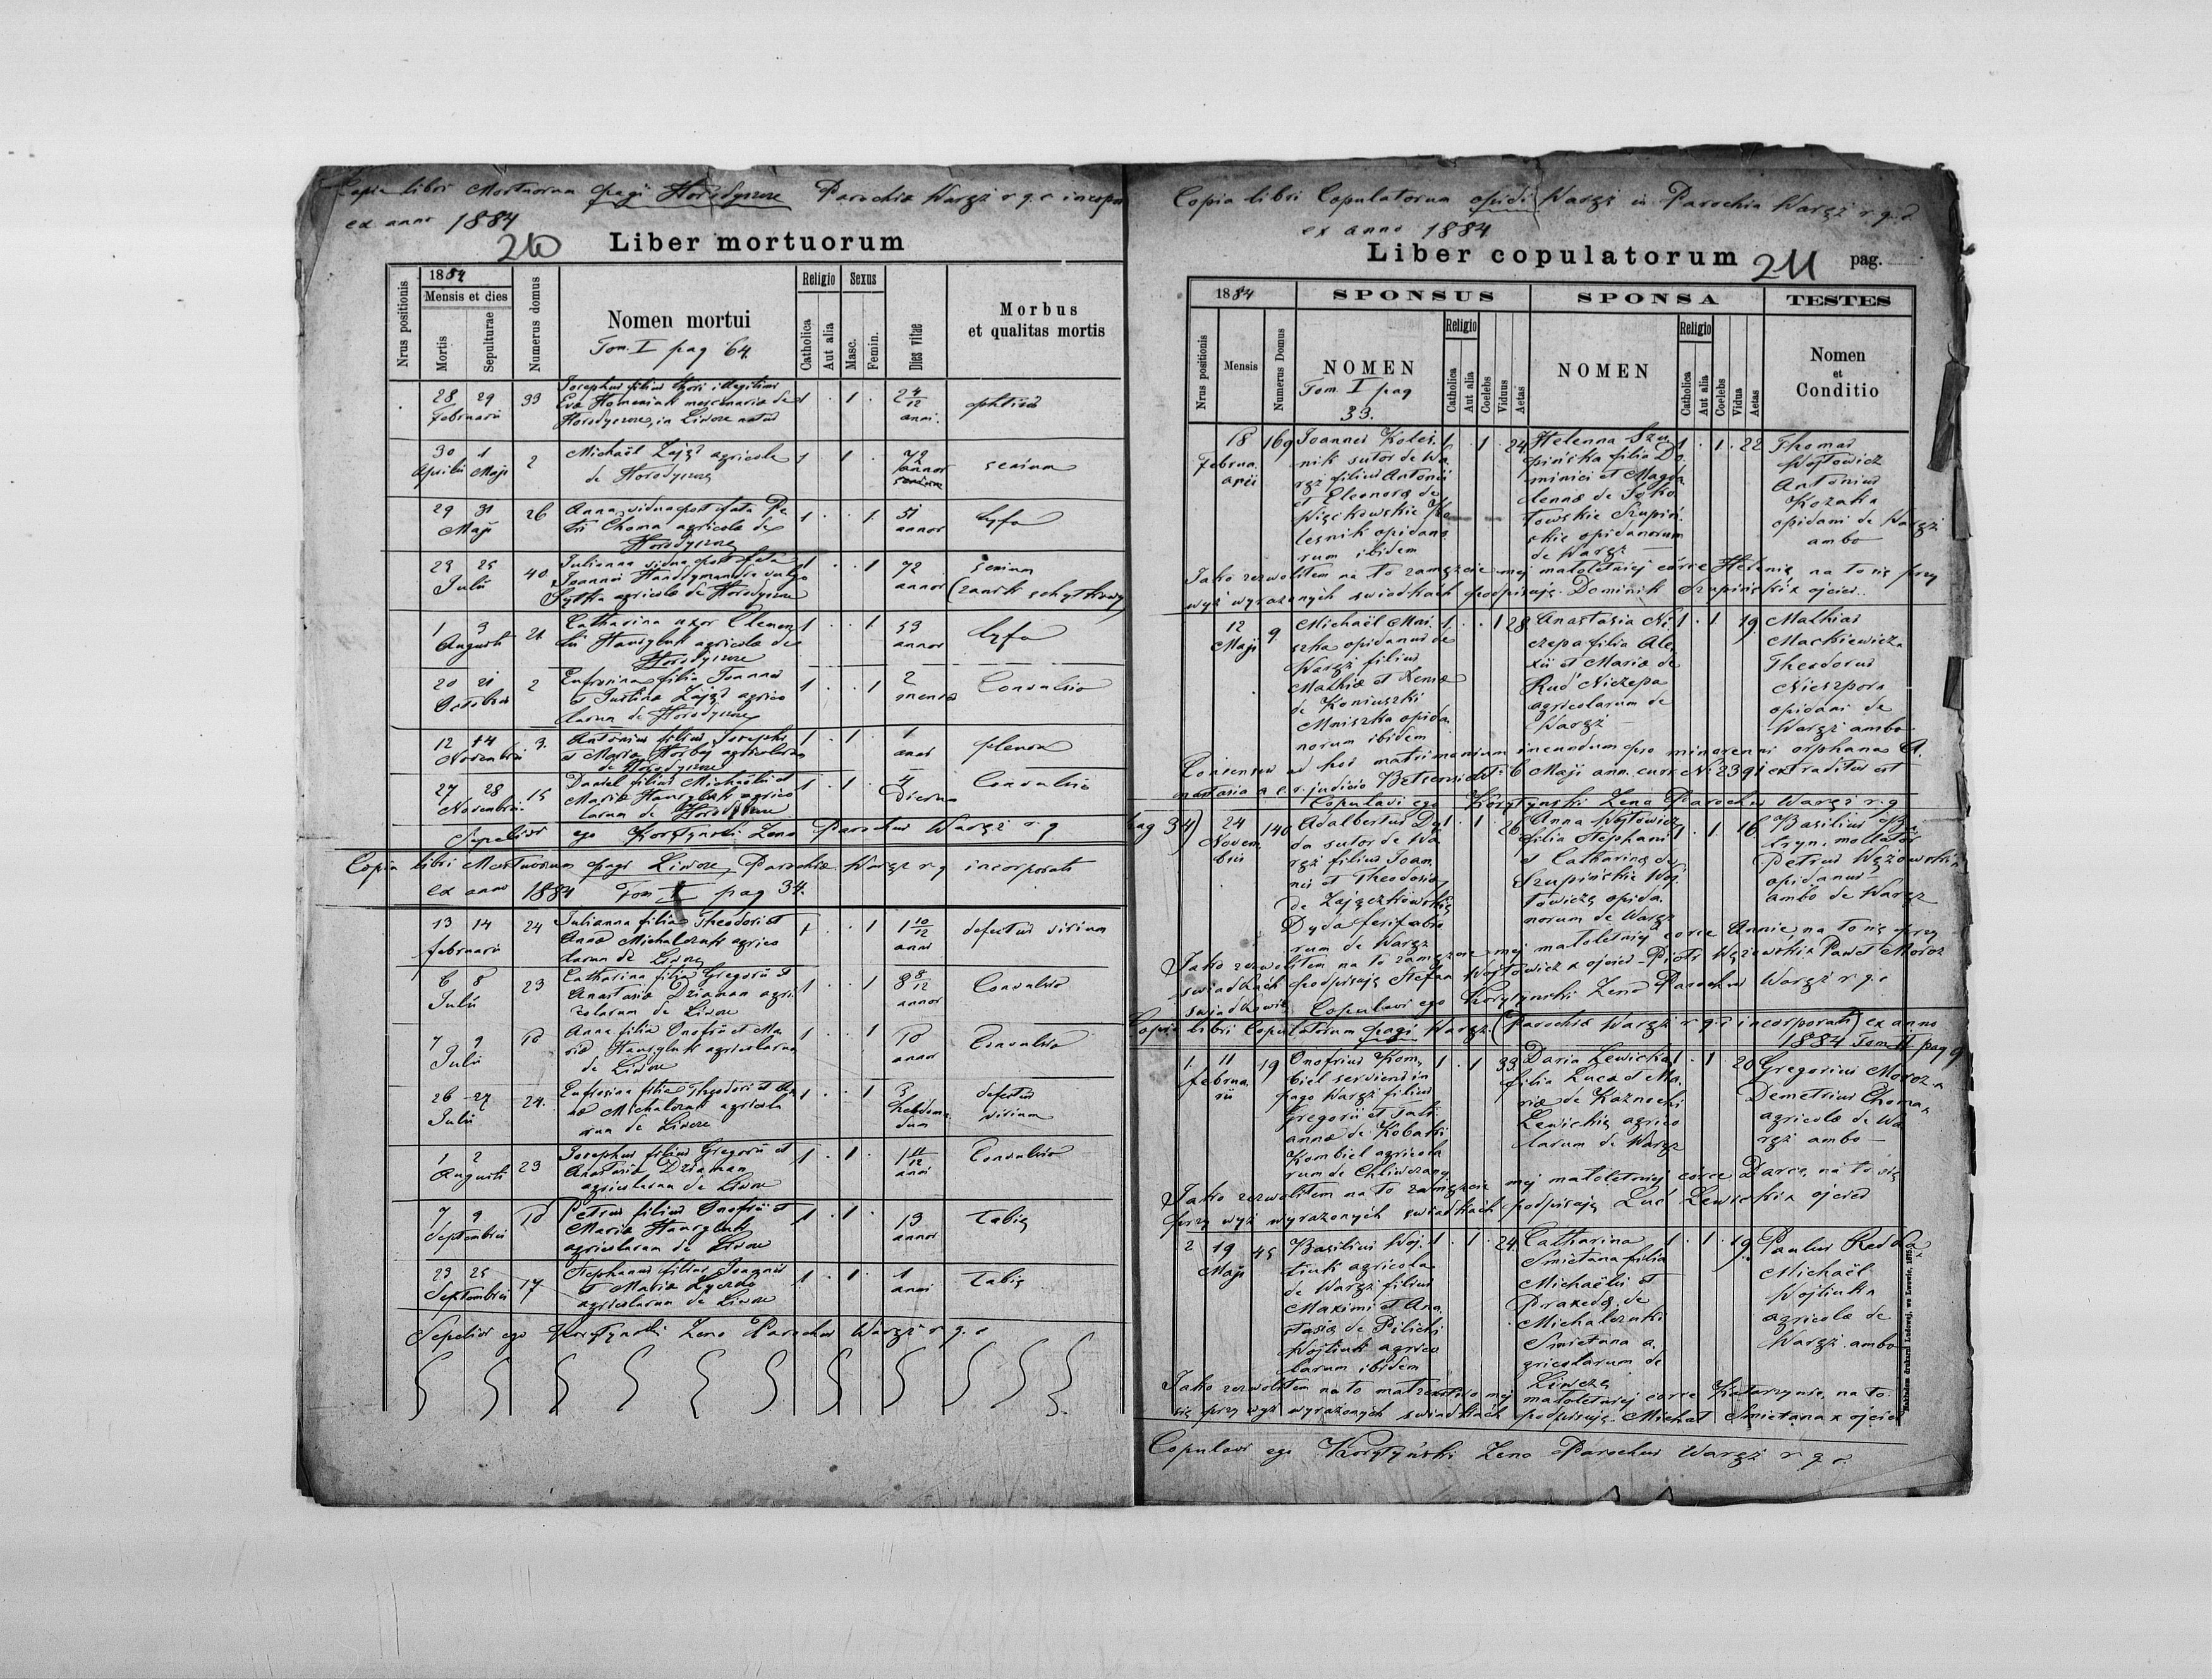 Copia libri Mortuorum pagi Horodyszcze Parochiæ Waręż r. g. c. incorpor
ex anno 1884
210 Liber mortuorum
Nrus positionis
1884
Mensis et dies
Mortis
Sepulturae
Numerus domus
Nomen mortui
Tom. I pag 64
Religio
Catholica
Aut alia
Sexus
Masc.
Femin.
Dies vitae
Morbus
et qualitas mortis
28 29 Februarii 33
Josephus filius thori illegitimi
Evæ mercenariæ de
Horodyszcze, in Liwcze natus
1 1 2 4/12 anni phtisis
30 1 Aprilis Maji 2
Michaël Zając agricola
de Horodyszcze
1 1 72 annor senium
29 31 Maji 26
Anna vidua post fata Pe
tri Choma agricolæ de
Horodyszcze
1 1 51 annor tyfus
23 25 Julii 40
Julianna vidua post fata
Joannis vulgo
agricolæ de Horodyszcze
1 1 72 annor senium
1 3 Augusti 21
Catharina uxor Clemen
tii agricolæ de
Horodyszcze
1 1 53 annor tyfus
20 21 Octobris 2
Eufrosina filia Joannis
et Justinæ Zając agrico
larum de Horodyszcze
1 1 2 menses Convulsio
12 14 Novembris 3
Antonius filius Josephi
et Mariæ agricolarum
de Horodyszcze
1 1 1 anni
27 28 Novembris 15
Daniel filius Michaëlis et
Mariæ agrico
larum de Horodyszcze
1 1 4 dierum Convulsio
Sepelivi ego Korytynski Zeno Parochus Waręż r. g.
Copia libri Mortuorum pagi Liwcze Parochiæ Waręż r. g. incorporati
ex anno 1884 Tom I pag 34.
13 14 februarii 24
Julianna filia Theodori et
Annæ Michalczuk agrico
larum de Liwcze
1 1 1 10/12 anni defectus virium
6 8 Julii 23
Catharina filia Gregorii et
Anastasiæ Dziaman agri
colarum de Liwcze
1 1 8 8/12 annor Convulsio
7 9 Julii 10
Anna filia Onofrii et Ma
riæ agricolarum
de Liwcze
1 1 10 annor Convulsio
26 27 Julii 24
Eufrosina filia Theodori et An
næ Michalczuk agricola
rum de Liwcze
1 1 3 hebdoma
dum defectus virium
1 2 Augusti 23
Josephus filius Gregorii et
Anastasiæ Dziaman
agricolarum de Liwcze
1 1 1 11/12 anni Convulsio
7 9 Septembris 10
Petrus filius Onofrii et
Mariæ
agricolarum de Liwcze
1 1 13 annor Tabis
23 25 Septembris 17
Stephanus filius Joannis
et Mariæ
agricolarum de Liwcze
1 1 1 anni Tabis
Sepelivi ego Korytynski Zeno Parochus Waręż r. g. c
Copia libri Copulatorum opidi Waręż in Parochia Waręż r. g. c.
ex anno 1884
Liber copulatorum 211 pag.
1884
SPONSUS
SPONSA
TESTES
Nrus positionis
Mensis
Numerus Domus
NOMEN
Tom. I pag
33.
Religio
Catholica
Aut alia
Coelebs
Viduus
Aetas
NOMEN
Religio
Catholica
Aut alia
Coelebs
Vidua
Aetas
Nomen
et
Conditio
18 Februa
arii 169
Joannes Koleś
nik sutor de Wa
ręż filius Antonii
et Eleonoræ de
Więckowskie Ko
lesnik opidano
rum ibidem
1 1 24
Helenna Szu
pińska filia Do
minici et Magda
lennæ de
Szupiń
skie opidanorum
de Waręż
1 1 22
Thomas
Wojtowicz
Antonius
Kozak
opidani de Waręż
ambo
Jako zezwoliłem na to zamęzcie mej małoletniej córce Helenie na to się przy
wyż wyrażonych swiadkach podpisuję Dominik Szupiński x ojciec.
12 Maji 9
Michaël Mni
szka opidanus de
Waręż filius
Mathiæ et Xeniæ
de Koniuszki
Mniszka opida
norum ibidem
1 1 28
Anastasia Ni
czepa filia Ale
xii et Mariæ de
Rud Niczepa
agricolarum de
Waręż
1 1 19
Mathias
Mackiewicz
Theodorus
Nieszpora
opidani de
Waręż ambo
Consensus ad hoc matrimonium ineundum pro minorenni orphana A
nastasia a c. r. judicio 6 Maji ann. curr. N. 2391 extraditus est
Copulavi ego Korytynski Zeno Parochus Waręż r. g
pag 34) 24 Novem
bris 140
Adalbertus Dy
da sutor de Wa
ręż filius Joan
nis et Theodosiæ
de Zajączkowskie
Dyda
rum de Waręż
1 1 26
Anna Wojtowicz
filia Stephani
et Catharinæ de
Szupińskie Woj
towicz opida
norum de Waręż
1 1 16
Basilius
molitor
Petrus Wężowski
opidanus
ambo de Waręż
Jako zezwoliłem na to zamęzcie mej małoletniej córce Annie, na to się przy
swiadkach podpisuję Stefan Wojtowicz x ojciec - Piotr Wężowski x Paweł Moroz
swiadkowie Copulavi ego Korytynski Zeno Parochus Waręż r. g. c
Copia libri Copulatorum pagi Waręż (Parochiæ Waręż r. g. c incorporati) ex anno
1884 Tom II pag 9
1 11 februa
rii 19
Onofrius Kom
biel serviens in
pago Waręż filius
Gregorii et Tati
annæ de Kobaski
Kombiel agricola
rum de Chliwczany
1 1 33
Daria Lewicka
filia Lucæ et Ma
riæ de
Lewickie agrico
larum de Waręż
1 1 20
Gregorius Moroz
Demetrius Choma
agricolæ de Wa
ręż ambo
Jako zezwoliłem na to zamęzcie mej małoletniej córce Darce, na to się
przy wyż wyrażonych swiadkach podpisuję Luć Lewicki x ojciec
2 19 Maji 45
Basilius Woj
tiuk agricola
de Waręż filius
Maximi et Ana
stasiæ de Pilichi
Wojtiuk agrico
larum ibidem
1 1 24
Catharina
Smietana filia
Michaëlis et
Paraxedæ de
Michalczuki
Smietana a
gricolarum de
Liwcze
1 1 19
Paulus Redka
Michaël
Wojtiuk
agricolæ de
Waręż ambo
Jako zezwoliłem na to małzeństwo mej małoletniej córce Katarzynie, na to
się przy wyż wyrażonych swiadkach podpisuję Michał Smietana x ojciec
Copulavi ego Korytyński Zeno Parochus Waręż r. g. c.
Nakładem drukarni Ludowej, we Lwowie, 1875.